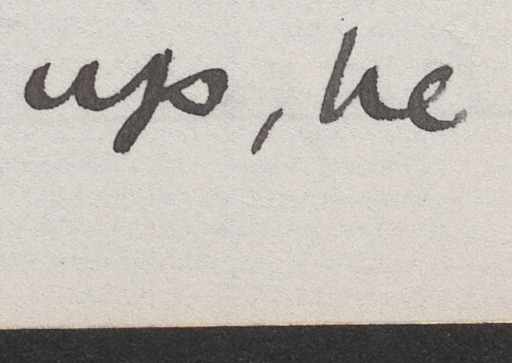 up, he